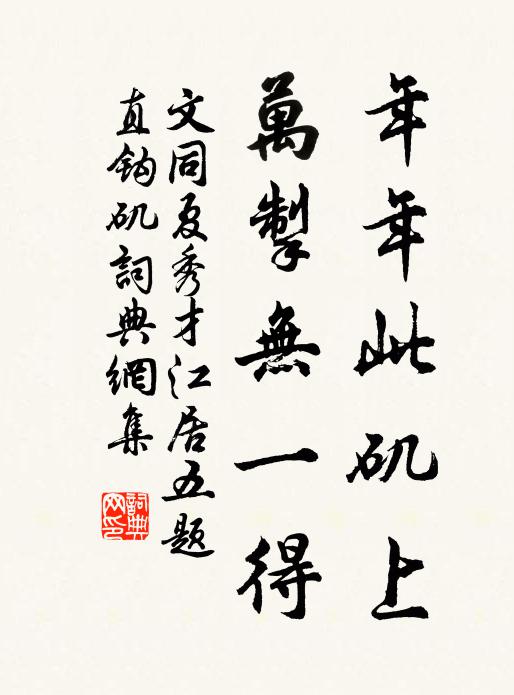 年年此矶上
萬掣無一得
文同夏秀才江居五题
直鈎矶詞典網集
詞典
网印